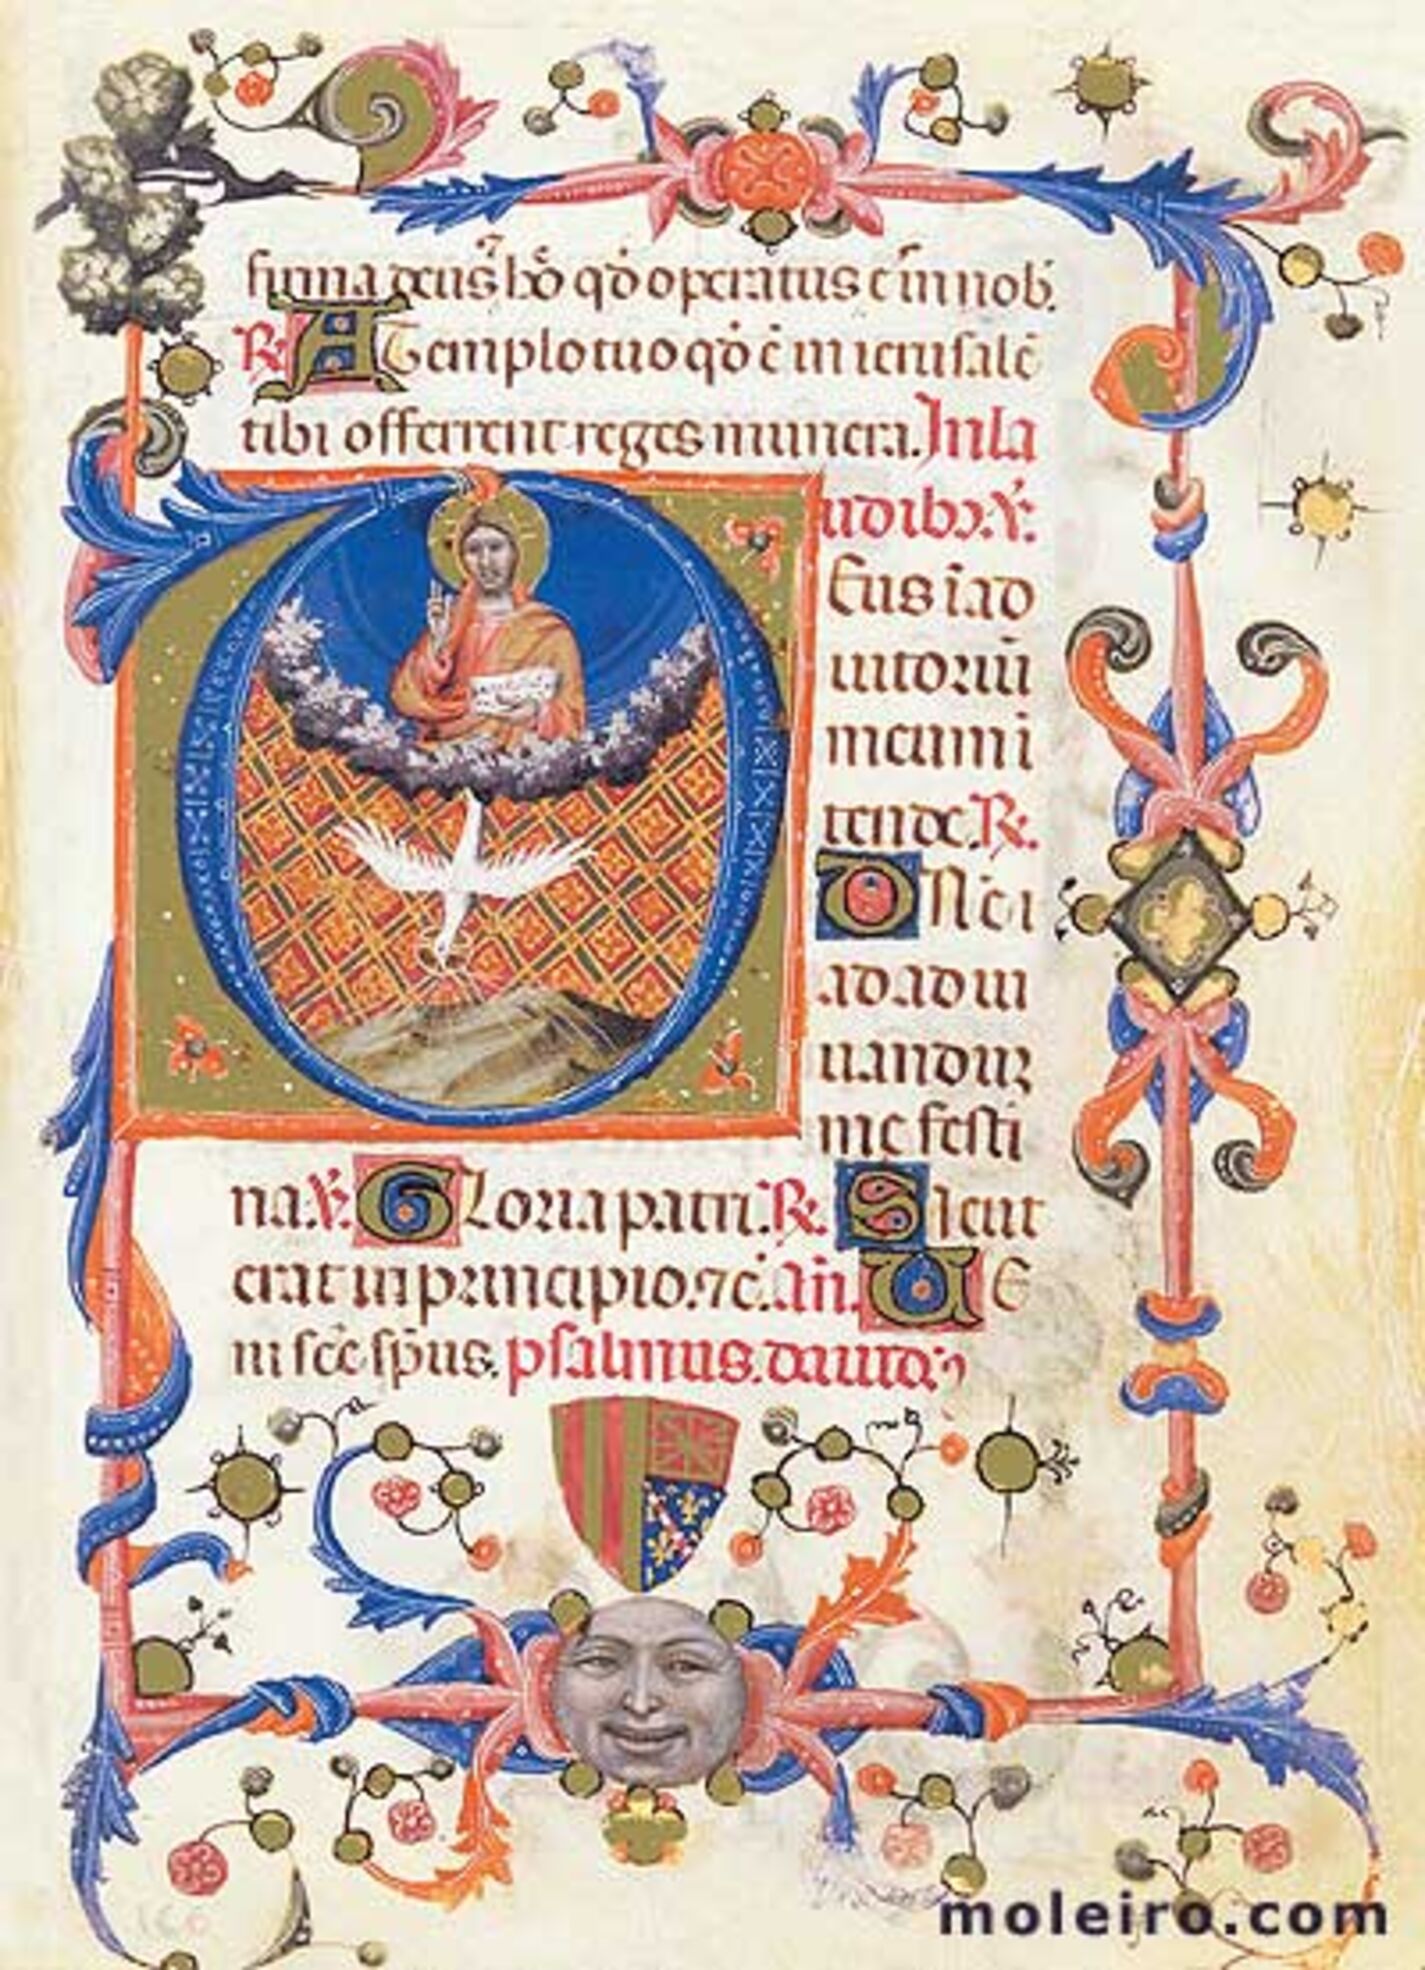 firma deus hō qō operatus ē in nob.
R. A Templo tuo qō ē in ierusalē
tibi offerent reges munera. In la
udibȝ. V.
Eus ī ad
iutoriū
meum i
tende. R.
Dn̄e i
ad adiu
uanduȝ
me festi
na. V. Gloria patri. R. Sicut
erat in principio. ⁊c. Añ. Ue
ni sc̄e sp̄us. psalmus. dauid.
moleiro.com